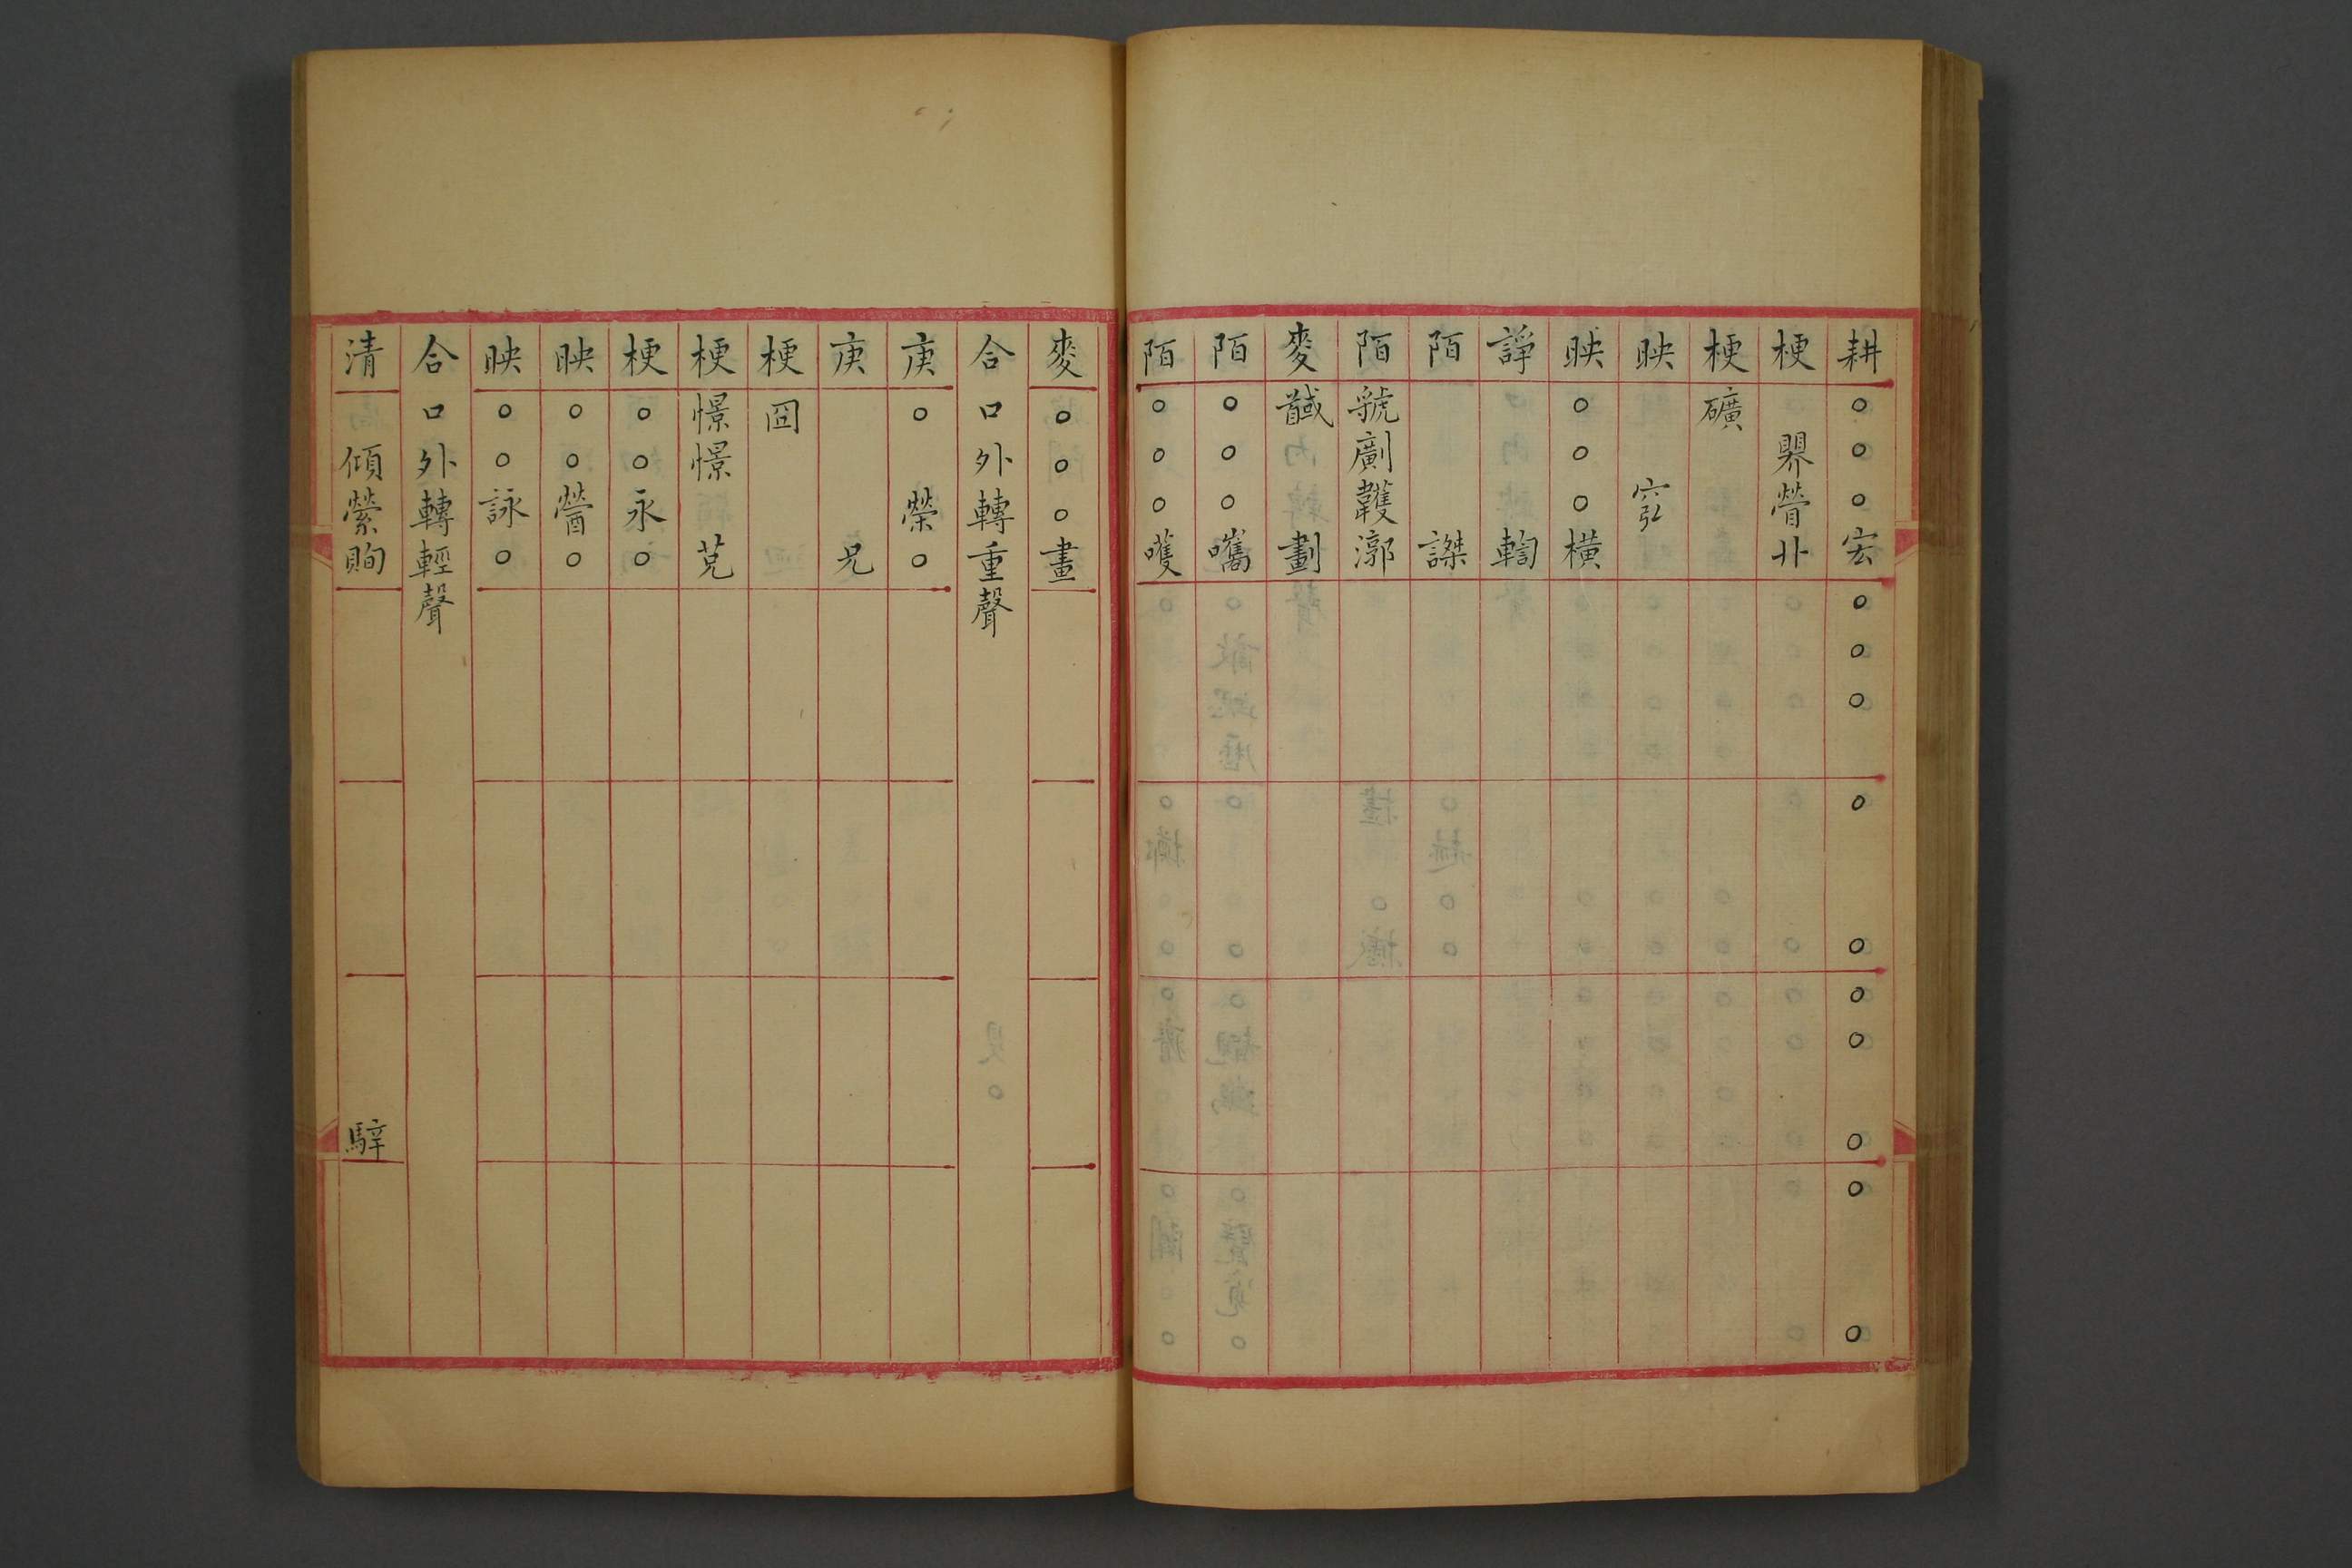 耕○○○宏○○○○○○○○○○
梗界𧭓卝
梗礦
映窉
映○○○橫
諍輷
陌謋
陌虢劆韄漷
麥馘劃
陌○○○嚿
陌○○○嚄
麥○○○畫
合口外轉重聲
庚○榮○
庚兄
梗囧
梗憬憬克
梗○○永○
映○○醟○
映○○詠○
合口外轉輕聲
清傾縈眴騂